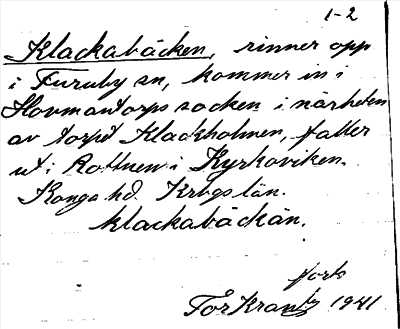 1-2
Klackabäcken, rinner opp
i Furuby sn, kommer in i
Hovmantorps socken i närheten
av torpet Klackholmen, faller
ut i Rottnen i Kyrkoviken.
Konga hd. Krbgs län.
Klackabäckån.
forts
Tör Krantz 1941